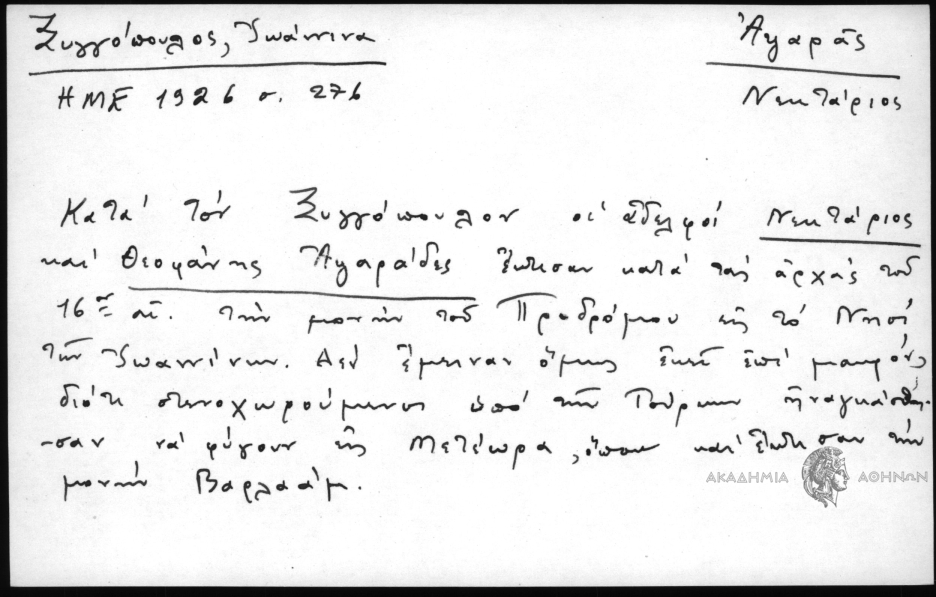 Ξυγγόπουλος, Ἰωάννινα
Ἀψαρᾶς
ΗΜΕ 1926 σ. 276
Νεκτάριος
Κατά τόν Ξυγγόπουλον οἱ ἀδελφοί Νεκτάριος
καί Θεοφάνης Ἀψαράδες ἔκτισαν κατά τάς ἀρχάς τοῦ
16ου αἰ. τήν μονήν τοῦ Προδρόμου εἰς τό Νησί
τῶν Ἰωαννίνων. Δέν ἔμειναν ὅμως ἐκεῖ ἐπί μακρόν,
διότι στενοχωρούμενοι ὑπό τῶν Τούρκων ἠναγκάσθη-
-σαν νά φύγουν εἰς Μετέωρα, ὅπου καί ἔκτισαν τήν
μονήν Βαρλαάμ.
ΑΚΑΔΗΜΙΑ ΑΘΗΝΩΝ